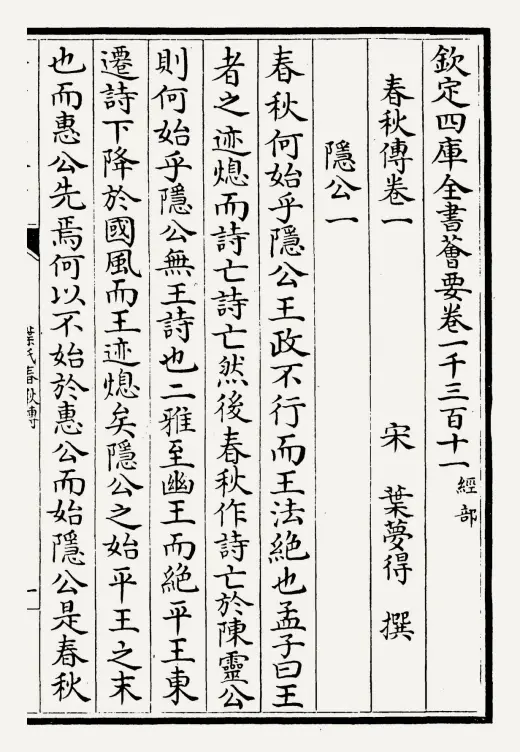 欽定四庫全書薈要卷一千三百十一 經部
春秋傳卷一 宋 葉夢得 撰
隱公一
春秋何始乎隱公王政不行而王法絶也孟子曰王
者之迹熄而詩亡詩亡然後春秋作詩亡於陳靈公
則何始乎隱公無王詩也二雅至幽王而絶平王東
遷詩下降於國風而王迹熄矣隱公之始平王之末
也而惠公先焉何以不始於惠公而始隱公是春秋
葉氏春秋傳
一